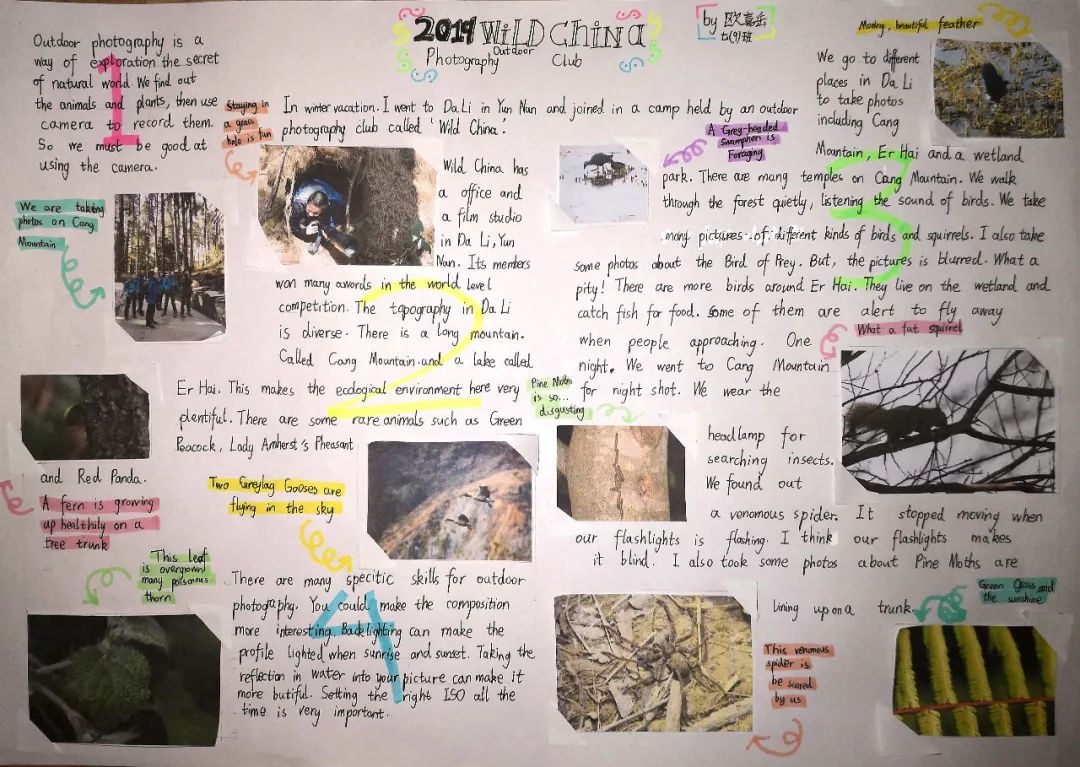 2019 WiLD China
Photography Outdoor Club
by 欧嘉乐
七(9)班
Outdoor photography is a
way of exploration the secret
of natural world. We find out
the animals and plants, then use
camera to record them.
So we must be good at
using the camera.
1
Staying in
a grass
hole is fun
We are taking
photos on Cang
Mountain
In winter vacation. I went to Da Li in Yun Nan and joined in a camp held by an outdoor
photography club called 'Wild China'.
Wild China has
a office and
a film studio
in Da Li, Yun
Nan. Its members
won many awords in the world level
competition. The topography in Da Li
is diverse. There is a long mountain.
Called Cang Mountain.and a lake called
Er Hai. This makes the ecological environment here very
plentiful. There are some rare animals such as Green
Peacock, Lady Amherst's Pheasant
and Red Panda.
2
A fern is growing
up healthily on a
tree trunk
Two Greylag Gooses are
flying in the sky
This leaf
is overgrown
many poisonous
thorn
A Grey-headed
Swamphen is
Foraging
Monkey, beautiful feather
We go to different
places in Da Li
to take photos
including Cang
Mountain, Er Hai and a wetland
park. There are many temples on Cang Mountain. We walk
through the forest quietly, listening the sound of birds. We take
many pictures of different kinds of birds and squirrels. I also take
some photos about the Bird of Prey. But, the pictures is blurred. What a
pity! There are more birds around Er Hai. They live on the wetland and
catch fish for food. Some of them are alert to fly away
when people approaching. One
night. We went to Cang Mountain
for night shot. We wear the
headlamp for
searching insects.
We found out
a venomous spider. It stopped moving when
our flashlights is flashing. I think our flashlights makes
it blind. I also took some photos about Pine Moths are
Lining up on a trunk.
3
What a fat squirrel
Pine Moths
is so...
disgusting
This venomous
spider is
be scared
by us
Green Grass and
the sunshine
There are many specitic skills for outdoor
photography. You could make the composition
more interesting. Backlighting can make the
profile lighted when sunrise and sunset. Taking the
reflection in water into your picture can make it
more butiful. Setting the right ISO all the
time is very important.
4